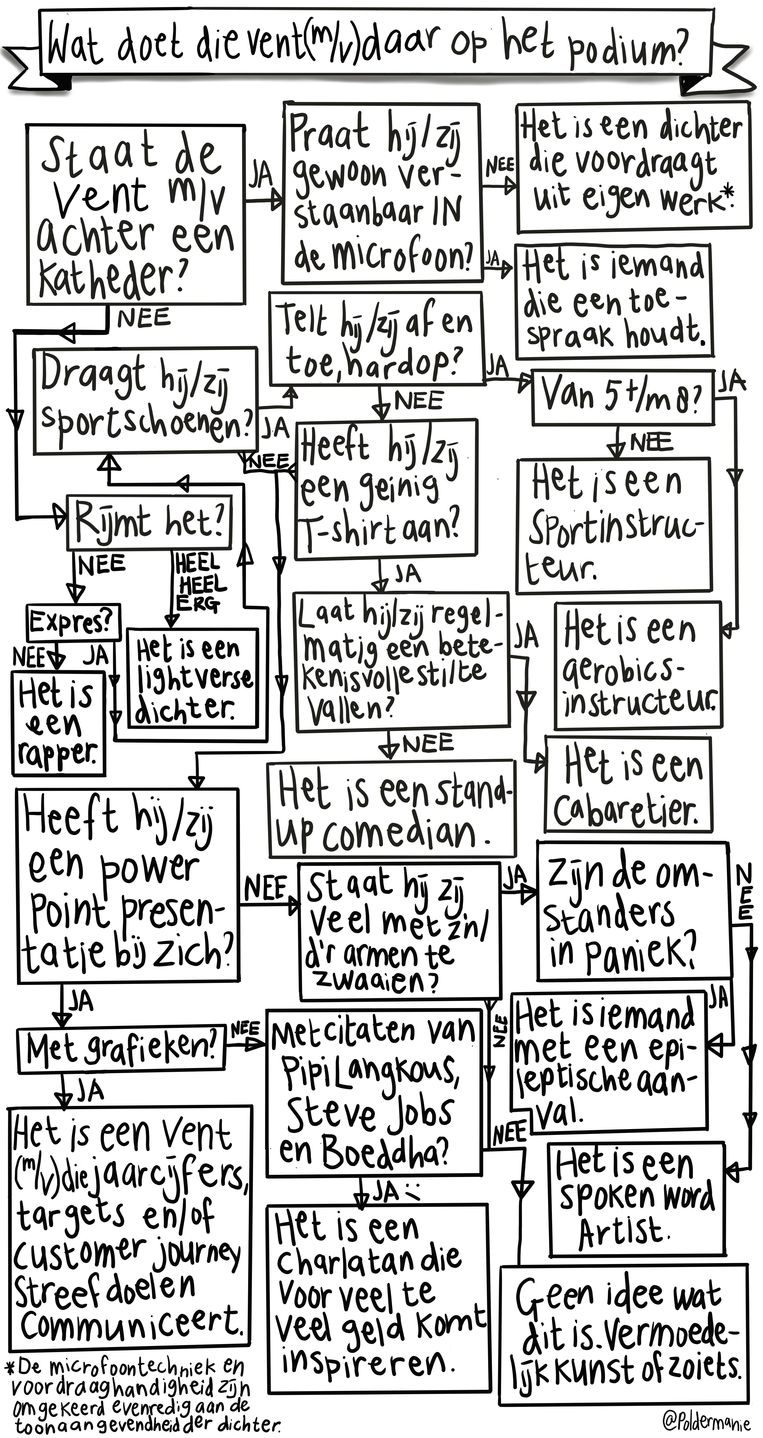 Wat doet die vent(m/v)daar op het podium?
Staat de
vent m/v
achter een
katheder?
JA
Praat hij/zij
gewoon ver-
staanbaar IN
de microfoon?
NEE
Het is een dichter
die voordraagt
uit eigen werk*.
JA
Het is iemand
die een toe-
spraak houdt.
NEE
Draagt hij/zij
sportschoenen?
JA
Telt hij/zij af en
toe, hardop?
JA
Van 5 t/m 8?
JA
NEE
NEE
NEE
Heeft hij/zij
een geinig
T-shirt aan?
Het is een
Sportinstruc-
teur.
Rijmt het?
NEE
HEEL
HEEL
ERG
JA
Expres?
NEE
JA
Het is een
lightverse
dichter.
Het is
een
rapper.
Laat hij/zij regel-
matig een bete-
kenisvolle stilte
vallen?
JA
Het is een
aerobics-
instructeur.
NEE
Het is een
Cabaretier.
Het is een stand-
up comedian.
Heeft hij/zij
een power
point presen-
tatie bij zich?
NEE
Staat hij zij
veel met z'n/
d'r armen te
zwaaien?
JA
Zijn de om-
standers
in paniek?
NEE
JA
JA
NEE
Met grafieken?
NEE
Met citaten van
Pipi Langkous,
Steve Jobs
en Boeddha?
Het is iemand
met een epi-
leptische aan-
val.
JA
NEE
Het is een vent
(m/v) die jaarcijfers,
targets en/of
customer journey
streefdoelen
communiceert.
JA :(
Het is een
spoken word
Artist.
Het is een
charlatan die
voor veel te
veel geld komt
inspireren.
Geen idee wat
dit is. Vermoede-
lijk kunst of zoiets.
*De microfoontechniek en
voordraaghandigheid zijn
omgekeerd evenredig aan de
toonaangevendheid der dichter.
@Poldermanie